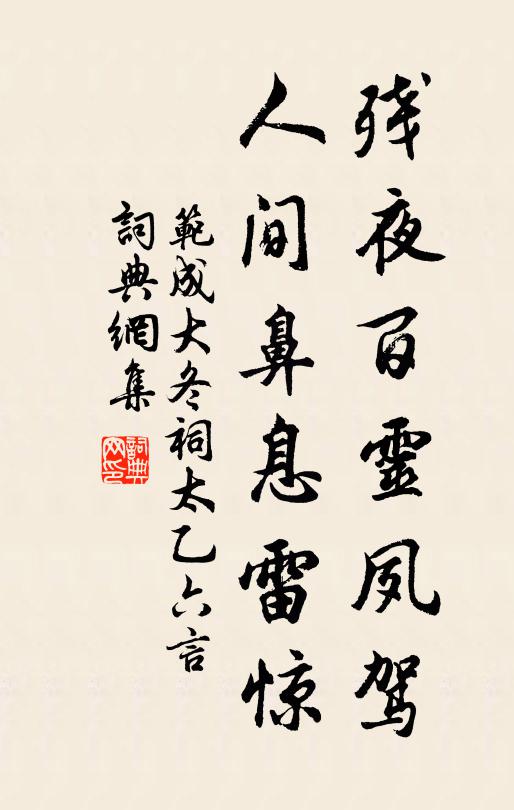 残夜百靈夙驾
人间鼻息雷惊
範成大冬祠太乙六言
詞典網集
詞典网印